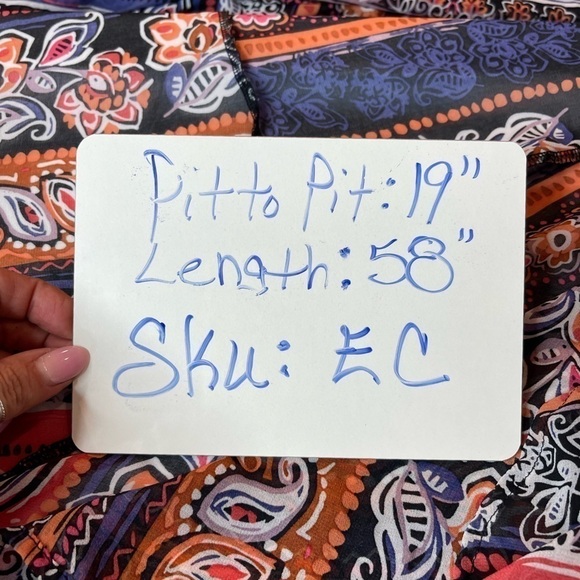 Pit to Pit: 19"
Length: 58"
Sku: EC